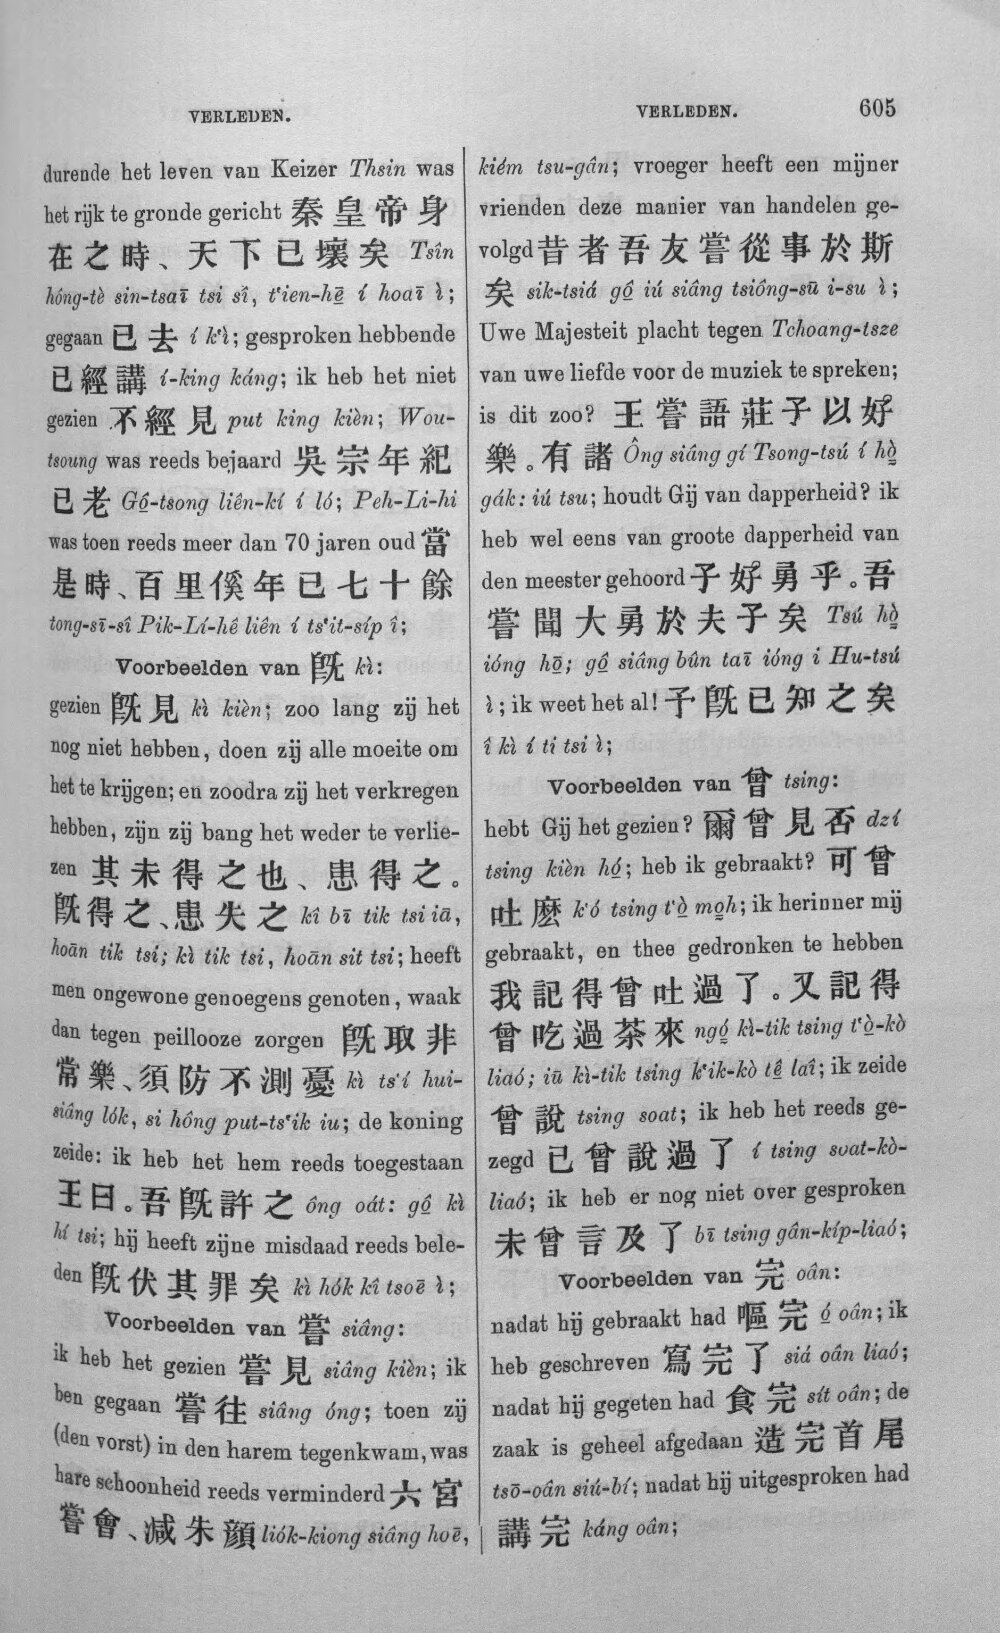 VERLEDEN.
durende het leven van Keizer Thsin was
het rijk te gronde gericht 秦皇帝身
在之時、天下已壞矣 Tsîn
hông-tè sin-tsaī tsi sî, t'ien-hē̲ í hoaī ì;
gegaan 已去 í k'ì; gesproken hebbende
已經講 í-king káng; ik heb het niet
gezien 不經見 put king kièn; Wou-
tsoung was reeds bejaard 吳宗年紀
已老 Gô̲-tsong liên-kí í ló; Peh-Li-hi
was toen reeds meer dan 70 jaren oud 當
是時、百里傒年已七十餘
tong-sī-sî Pik-Lí-hê liên í ts'it-síp î;
Voorbeelden van 旣 kì:
gezien 旣見 kì kièn; zoo lang zij het
nog niet hebben, doen zij alle moeite om
het te krijgen; en zoodra zij het verkregen
hebben, zijn zij bang het weder te verlie-
zen 其未得之也、患得之。
旣得之、患失之 kî bī tik tsi iā,
hoān tik tsi; kì tik tsi, hoān sit tsi; heeft
men ongewone genoegens genoten, waak
dan tegen peillooze zorgen 旣取非
常樂、須防不測憂 kì ts'í hui-
siâng lók, si hông put-ts'ik iu; de koning
zeide: ik heb het hem reeds toegestaan
王曰。吾旣許之 ông oát: gô̲ kì
hí tsi; hij heeft zijne misdaad reeds bele-
den 旣伏其罪矣 kì hók kî tsoē ì;
Voorbeelden van 嘗 siâng:
ik heb het gezien 嘗見 siâng kièn; ik
ben gegaan 嘗往 siâng óng; toen zij
(den vorst) in den harem tegenkwam, was
hare schoonheid reeds verminderd 六宮
嘗會、减朱顔 liók-kiong siâng hoē,
VERLEDEN. 605
kiém tsu-gân; vroeger heeft een mijner
vrienden deze manier van handelen ge-
volgd 昔者吾友嘗從事於斯
矣 sik-tsiá gô̲ iú siâng tsiông-sū i-su ì;
Uwe Majesteit placht tegen Tchoang-tsze
van uwe liefde voor de muziek te spreken;
is dit zoo? 王嘗語莊子以好
樂。有諸 Ông siâng gí Tsong-tsú í hò̲
gák: iú tsu; houdt Gij van dapperheid? ik
heb wel eens van groote dapperheid van
den meester gehoord 子好勇乎。吾
嘗聞大勇於夫子矣 Tsú hò̲
ióng hō̲; gô̲ siâng bûn taī ióng i Hu-tsú
ì; ik weet het al! 予旣已知之矣
î kì í ti tsi ì;
Voorbeelden van 曾 tsing:
hebt Gij het gezien? 爾曾見否 dzí
tsing kièn hó̲; heb ik gebraakt? 可曾
吐麽 k'ó tsing t'ò̲ mo̲h; ik herinner mij
gebraakt, en thee gedronken te hebben
我記得曾吐過了。又記得
曾吃過茶來 ngó̲ kì-tik tsing t'ò̲-kò
liaó; iū kì-tik tsing k'ik-kò tê̲ laî; ik zeide
曾說 tsing soat; ik heb het reeds ge-
zegd 已曾說過了 í tsing soat-kò-
liaó; ik heb er nog niet over gesproken
未曾言及了 bī tsing gân-kíp-liaó;
Voorbeelden van 完 oân:
nadat hij gebraakt had 嘔完 ó̲ oân; ik
heb geschreven 寫完了 siá oân liaó;
nadat hij gegeten had 食完 sít oân; de
zaak is geheel afgedaan 造完首尾
tsō-oân siú-bí; nadat hij uitgesproken had
講完 káng oân;